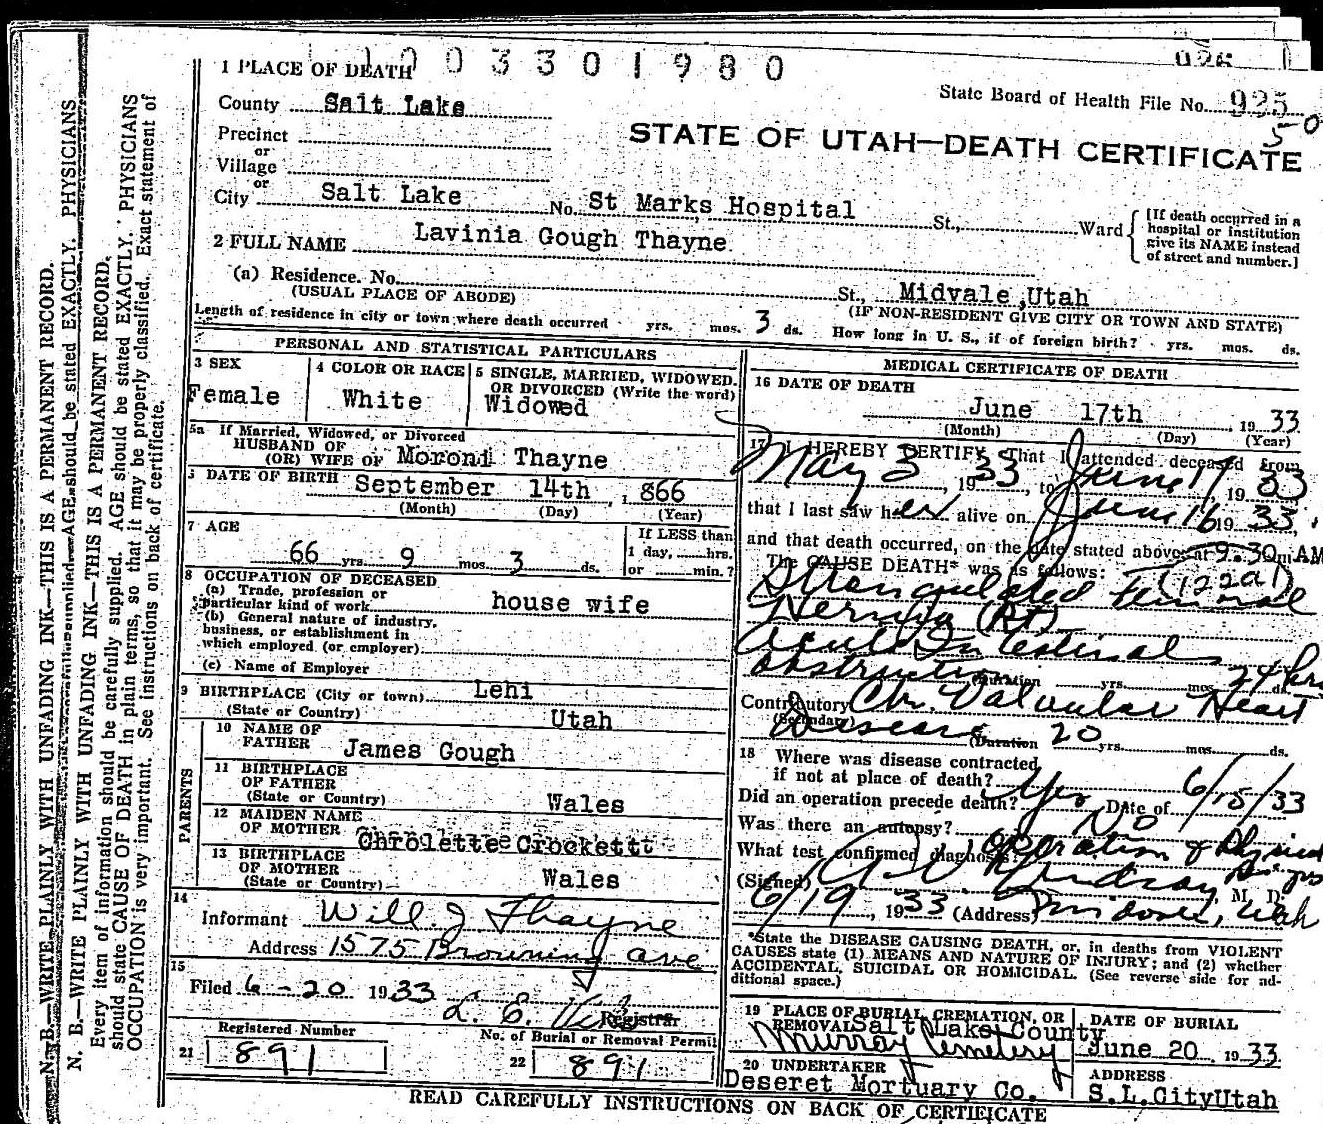 1003301980
926
State Board of Health File No. 925
50
1 PLACE OF DEATH
County Salt Lake
STATE OF UTAH—DEATH CERTIFICATE
Precinct
or
Village
or
City Salt Lake No. St Marks Hospital St., Ward {[If death occurred in a hospital or institution give its NAME instead of street and number.]
2 FULL NAME Lavinia Gough Thayne
(a) Residence. No. St., Midvale, Utah
(USUAL PLACE OF ABODE) (IF NON-RESIDENT GIVE CITY OR TOWN AND STATE)
Length of residence in city or town where death occurred yrs. mos. 3 ds. How long in U. S., if of foreign birth? yrs. mos. ds.
PERSONAL AND STATISTICAL PARTICULARS
3 SEX
Female
4 COLOR OR RACE
White
5 SINGLE, MARRIED, WIDOWED.
OR DIVORCED (Write the word)
Widowed
5a If Married, Widowed, or Divorced
HUSBAND OF
(OR) WIFE OF Moroni Thayne
DATE OF BIRTH September 14th, 1866
(Month) (Day) (Year)
7 AGE
66 yrs. 9 mos. 3 ds.
If LESS than
1 day, hrs.
or min.?
8 OCCUPATION OF DECEASED
(a) Trade, profession or
particular kind of work house wife
(b) General nature of industry,
business, or establishment in
which employed (or employer)
(c) Name of Employer
9 BIRTHPLACE (City or town) Lehi
(State or Country) Utah
PARENTS
10 NAME OF
FATHER James Gough
11 BIRTHPLACE
OF FATHER
(State or Country) Wales
12 MAIDEN NAME
OF MOTHER Crockett
13 BIRTHPLACE
OF MOTHER
(State or Country) Wales
14
Informant Will J Thayne
Address 1575 Browning ave
15
Filed 6-20 1933
L. E.
Registrar
Registered Number
21 891
No. of Burial or Removal Permit
22 891
MEDICAL CERTIFICATE OF DEATH
16 DATE OF DEATH
June 17th, 1933
(Month) (Day) (Year)
17 I HEREBY CERTIFY, That I attended deceased from
May 3, 1933, to June 17, 1933
that I last saw her alive on June 16 1933,
and that death occurred, on the date stated above at 9:30 m. AM
The CAUSE DEATH* was as follows: (122a1)
Strangulated Femoral
Hernia (Rt)
Acute Intestinal
obstruction (Duration yrs. mos. 24 hrs ds.
Contributory Chr. Valvular Heart
(Secondary) Disease (Duration 20 yrs. mos. ds.
18 Where was disease contracted
if not at place of death?
Did an operation precede death? Yes Date of 6/15/33
Was there an autopsy? No
What test confirmed diagnosis? Operation & Physical
(Signed) Lindsay, M. D.
6/19, 1933 (Address) Midvale, Utah
*State the DISEASE CAUSING DEATH, or, in deaths from VIOLENT
CAUSES state (1) MEANS AND NATURE OF INJURY; and (2) whether
ACCIDENTAL, SUICIDAL OR HOMICIDAL. (See reverse side for ad-
ditional space.)
19 PLACE OF BURIAL, CREMATION, OR
REMOVAL Salt Lake County
Murray Cemetery
DATE OF BURIAL
June 20, 1933
20 UNDERTAKER
Deseret Mortuary Co.
ADDRESS
S.L.City Utah
READ CAREFULLY INSTRUCTIONS ON BACK OF CERTIFICATE
N. B.—WRITE PLAINLY WITH UNFADING INK—THIS IS A PERMANENT RECORD.
N. B.—WRITE PLAINLY WITH UNFADING INK—THIS IS A PERMANENT RECORD.
Every item of information should be carefully supplied. AGE should be stated EXACTLY. PHYSICIANS
should state CAUSE OF DEATH in plain terms, so that it may be properly classified. Exact statement of
OCCUPATION is very important. See instructions on back of certificate.